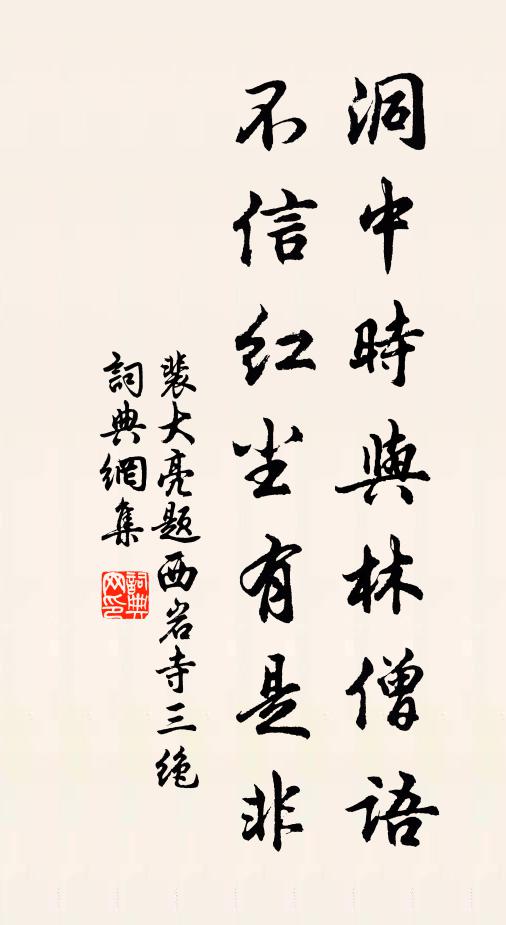 洞中時與林僧語
不信紅尘有是非
裴大亮题西岩寺三絶
詞典網集
詞典网印